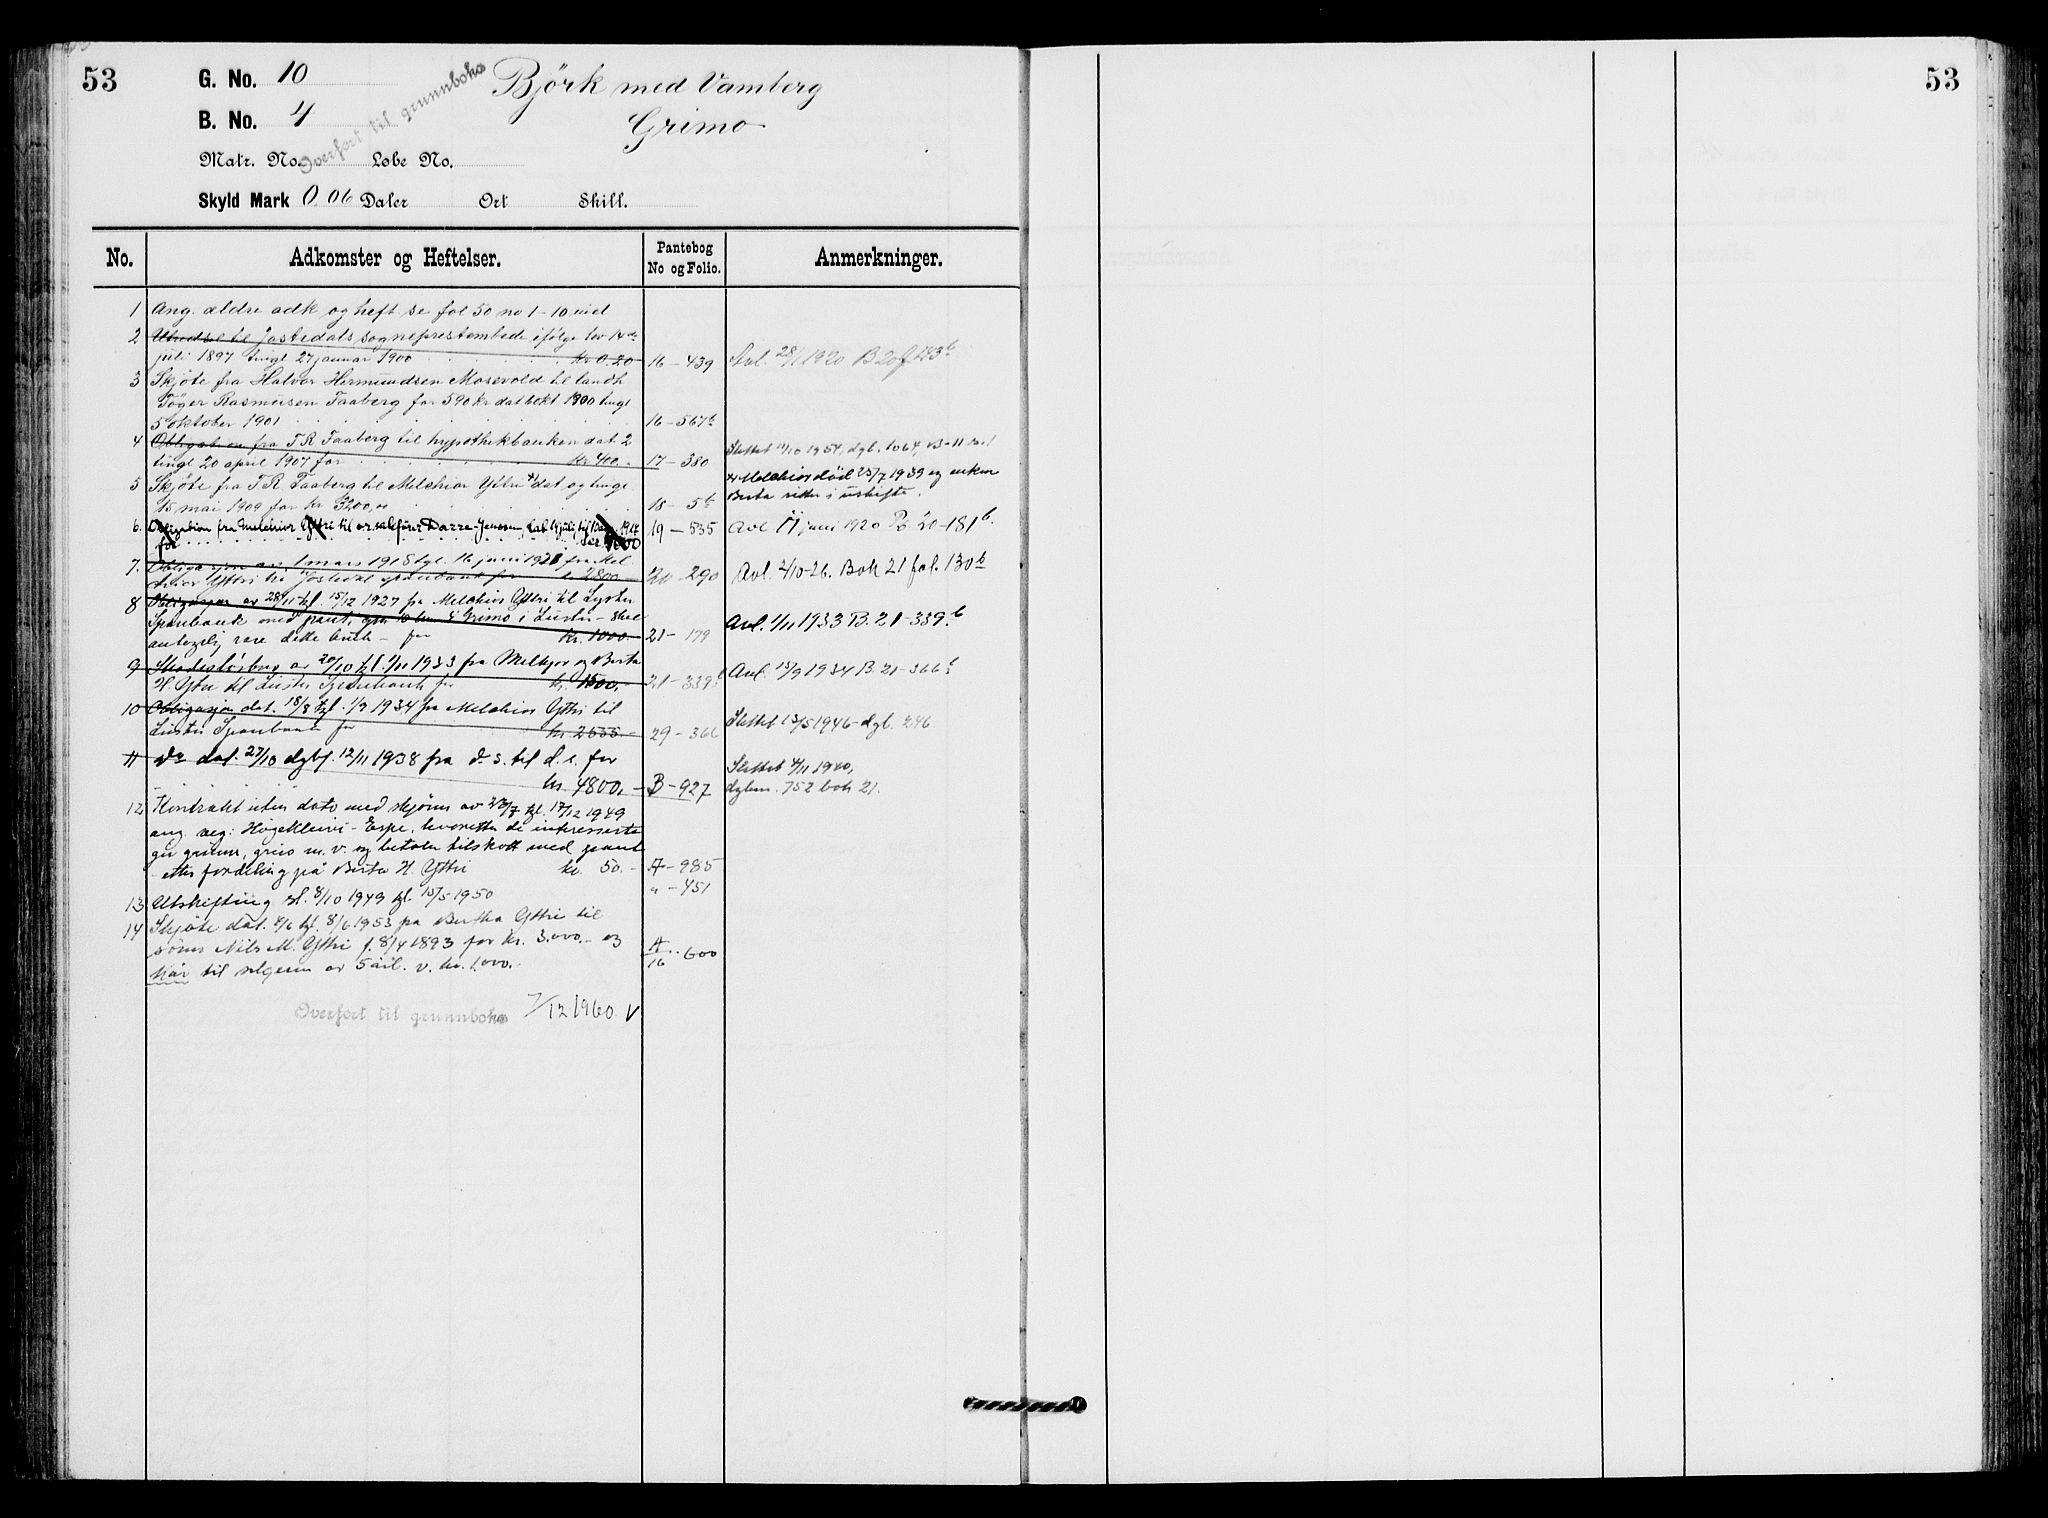 53
G. No. 10
Björk med Vamberg
B. No. 4
Grimo
Overført til grunnboka
Matr. No. Løbe No.
Skyld Mark 0.06 Daler Ort Skill.
53
No. Adkomster og Heftelser. Pantebog No og Folio. Anmerkninger.
1 Ang. ældre adk og heft se fol 50 no 1-10 incl
2 til Jostedals sogneprestembede ifölge lov 14de
juli 1897 tingl 27 januar 1900 kr 0.20 16-439 Avl. 28/1 1920 B 20
3 Skjöte fra Halvor Hermundsen Mosevold til landh
Töger Rasmusen Faaberg for 590 kr dat oekt 1900 tingl
5 oktober 1901 16-567b
4 Obligation fra T R Faaberg til hypothekbanken dat 2
tingl 20 april 1907 for kr 400.- 17-380 Slettet 11/10 1954, dgb. 1064,
5 Skjöte fra T R Faaberg til Melchior Yttri x) dat og tingl
15 mai 1909 for kr 3200,00 18-5b
x) Melchior död 25/7 1939 og enken
Berta sitter i uskifte.
6. Obligation fra Melchior Yttri til o.r. sakförer Darre-Jenssen, dat
for kr 1000 19-535 Avl 11 juni 1920 Pb 20-181b.
7. Obligasjon av 1 mars 1918 tgl. 16 juni 1921 fra Mel
chior Yttri til Jostedal sparebank for kr 2800.- 20-290 Avl. 2/10-26. Bok 21 fol. 130b
8 Obligasjon av 28/11 tgl. 15/12 1927 fra Melchior Yttri til Lyster
Sparebank med pant, gnr. 10 bnr. 4 Grimo i Luster - skal
antagelig være dette bruk - for kr. 1000.- 21-179 Avl. 1/11 1933 B. 21-339b
9 Skadesløsbrev av 20/10 tgl. 1/11 1933 fra Melkjor og Berta
H. Yttri til Luster Sparebank for kr. 1500.- 21-339b Avl. 15/9 1934 B. 21-366b
10 Obligasjon dat. 18/8 tgl. 1/9 1934 fra Melchior Yttri til
Luster Sparebank for kr. 2535.- 29-366 Slettet 13/5 1946 - dgb. 296.
11 do dat. 27/10 dgbf. 12/11 1938 fra d. s. til d. s. for
kr. 4800.- B-927 Slettet 4/11 1940,
dgbnr. 752 bok 21.
12 Kontrakt uten dato med skjönn av 23/7 tgl. 17/12 1949
ang. veg: Høgekleivi - Espe, hvoretter de interesserte
gir grunn, grus m. v. og betaler tilskott med pant
- etter fordeling på Berta H. Yttri kr. 50.- A-985
13 Utskifting sl. 8/10 1949 tgl. 15/5 1950 " -451
14 Skjöte dat. 4/6 tgl. 8/6 1953 fra Bertha Yttri til
sönn Nils M. Yttri f. 8/4 1893 for kr. 3.000.- og
kår til selgeren av 5 åil. v. kr. 1.000.- A/16-600
Overført til grunnboka 7/12 1960 V